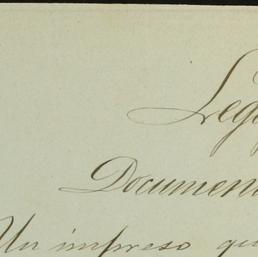 Lega
Documen
Un impreso que